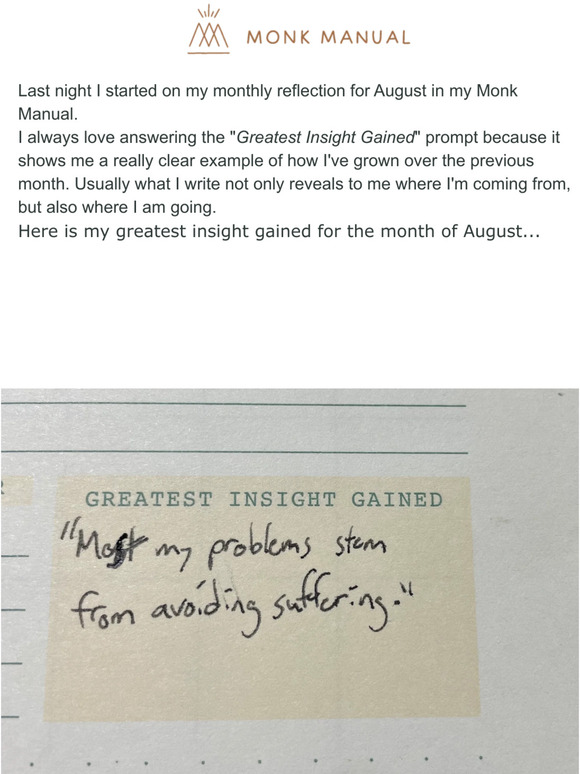 MONK MANUAL
Last night I started on my monthly reflection for August in my Monk
Manual.
I always love answering the "Greatest Insight Gained" prompt because it
shows me a really clear example of how I've grown over the previous
month. Usually what I write not only reveals to me where I'm coming from,
but also where I am going.
Here is my greatest insight gained for the month of August...
GREATEST INSIGHT GAINED
"Most my problems stem
from avoiding suffering."